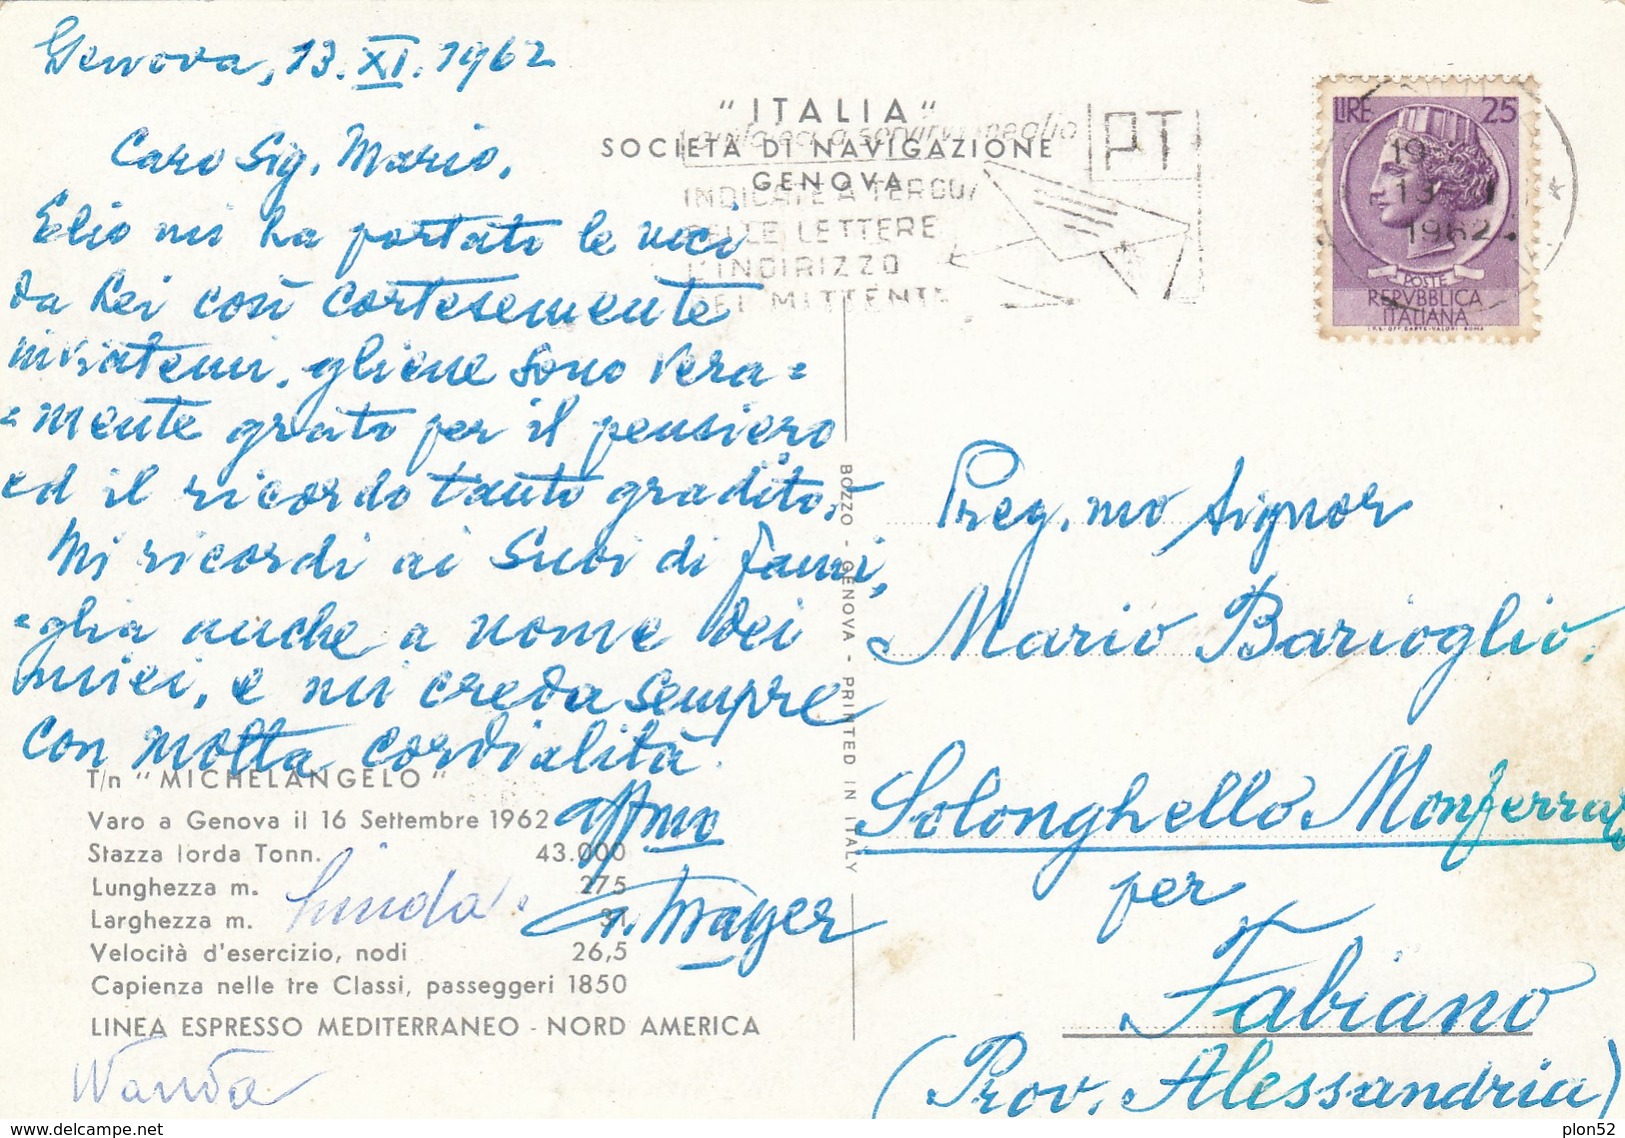 Genova, 13. XI. 1962
Caro Sig. Mario,
Elio mi ha portato le noci
da Lei così cortesemente
inviatemi. gliene sono vera=
=mente grato per il pensiero
ed il ricordo tanto gradito.
Mi ricordi ai Suoi di fami,
=glia anche a nome dei
miei, e mi creda sempre
con molta cordialità!
affmo
Mayer
Linda
Wanda
"ITALIA"
SOCIETÀ DI NAVIGAZIONE
GENOVA
PT
INDICATE A TERGO
DELLE LETTERE
L'INDIRIZZO
DEL MITTENTE
LIRE 25
POSTE
REPVBBLICA
ITALIANA
I.P.S.-OFF. CARTE-VALORI-ROMA
19
13
1962
BOZZO - GENOVA - PRINTED IN ITALY
Preg.mo Signor
Mario Barioglio,
Solonghello Monferrato
per
Fabiano
(Prov. Alessandria)
T/n "MICHELANGELO"
Varo a Genova il 16 Settembre 1962
Stazza lorda Tonn. 43.000
Lunghezza m. 275
Larghezza m. 31
Velocità d'esercizio, nodi 26,5
Capienza nelle tre Classi, passeggeri 1850
LINEA ESPRESSO MEDITERRANEO - NORD AMERICA
www.delcampe.net
plon52